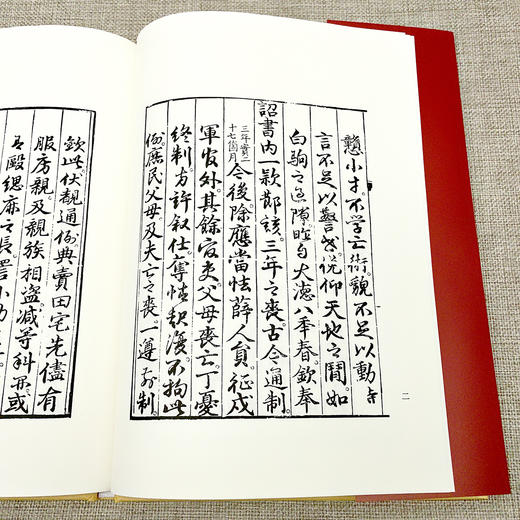 戇小才。不学亡術。貌不足以動
言不足以警世。俛仰天地之間。如
白駒之過隙。自大德八年春。欽奉
詔書内一欵節該。三年之喪。古今通制。
三年實二
十七箇月
今後除應當怯薛人員。征戍
軍官外。其餘官吏父母喪亡。丁憂
終制。方許叙仕。奪情起復。不拘此
例。庶民父母及夫亡之喪。一遵制。
二
欽此。伏覩通例典賣田宅。先儘有
服房親。及親族相盗减等科罪。或
毆緦麻之長。詈小功